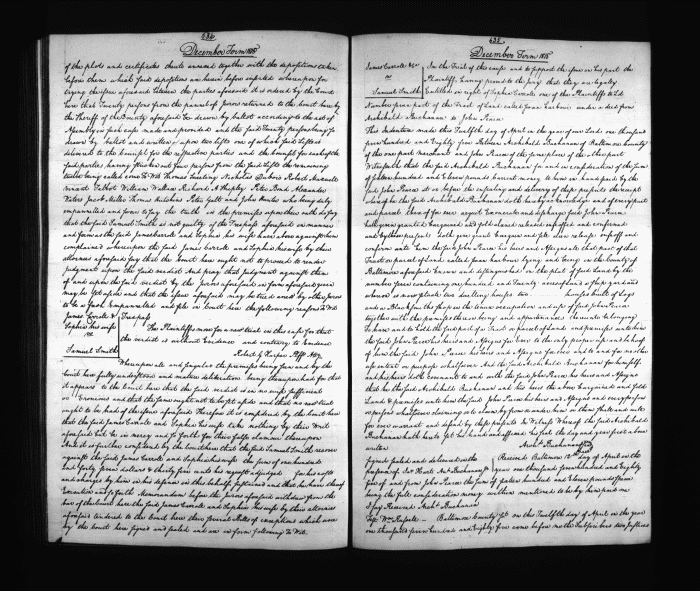 634
December Term 1815
of the plots and certificates thereto annexed together with the depositions taken
before them which said depositions are herein before inserted whereupon for
trying the issue aforesaid between the parties aforesaid it is ordered by the Court
here that Twenty persons from the pannel of Jurors returned to the Court here by
the Sheriff of the County aforesaid be drawn by ballot according to the act of
Assembly in such case made and provided and the said Twenty persons being so
drawn by ballot and written upon two lists one of which said Lists is
delivered to the Counsel for the respective parties and the Counsel for each of the
said parties having stricken out four persons from the said Lists the remaining
twelve being called come To Wit Thomas
Talbot William Wallace Richard A Shipley Peter Bond Alexander
Jacob Miller Thomas Peter Galt and John who being duly
impannelled and sworn to say the truth in the premises upon their oath do say
that the said Samuel Smith is not guilty of the Trespass aforesaid in manner
and form as the said James Carroll and Sophia his wife have above against him
complained whereupon the said James Carroll and Sophia his wife by their
attornies aforesaid say that the Court here ought not to proceed to render
judgment upon the said verdict And pray that judgment against them
of and upon the said verdict by the Jurors aforesaid in form aforesaid given
may be set aside and that the issue aforesaid may be tried anew by other Jurors
to be in such impannelled and file in Court here the following reasons To Wit
James Carroll & Trespass
Sophia his wife
vs
Samuel Smith
The Plaintiffs move for a new trial in this case for that
the verdict is without Evidence and contrary to Evidence
Robert G Harper Plffs Atty
Whereupon all and singular the premises being seen and by the
Court here fully understood and mature deliberation being thereupon had for that
it appears to the Court here that the said verdict is in no wise insufficient
or Erroneous and that the same ought not to be set aside and that no new trial
ought to be had of the issue aforesaid Therefore it is considered by the Court here
that the said James Carroll and Sophia his wife take nothing by their Writ
aforesaid but be in mercy and so forth for their false clamour thereupon
And it is further considered by the Court here that the said Samuel Smith recover
against the said James Carroll and Sophia his wife the sum of one hundred
and forty seven dollars & thirty five cents his request adjudged for his costs
and charges by him in his defence in this behalf sustained and that he have thereof
Execution and so forth Memorandum before the Jurors aforesaid withdrew from the
bar of the Court here the said James Carroll and Sophia his wife by their attornies
aforesaid tendered to the Court here their several Bills of exceptions which were
by the Court here signed and sealed and are in form following To Wit
635
December Term 1815
James Carroll & Ux
vs
Samuel Smith
In the Trial of this cause and to support the issue on his part the
Plaintiff having proved to the jury that they are legally
Entitled in right of Sophia Carroll one of the Plaintiffs to Ld
Number four part of the Tract of Land called Joan harbour under a deed from
Archibald Buchanan to John Pierce
This Indenture made this Twelfth day of April in the year of our Lord one thousand
seven hundred and Eighty five Between Archibald Buchanan of Baltimore County
of the one part merchant and John Pierce of the same place of the other part
Witnesseth that the said Archibald Buchanan for and in consideration of the sum
of sixteen hundred and eleven pounds current money to him in hand paid by the
said John Pierce at or before the ensealing and delivery of these presents the receipt
whereof he the said Archibald Buchanan doth hereby acknowledge and of every part
and parcel thereof for ever acquit Exonerate and discharge said John Pierce
hath given granted bargained and sold aliened released enfeoffed and confirmed
and by these presents doth give grant bargain and sell alien release enfeoff and
confirm unto him the said John Pierce his heirs and Assigns all that part of that
Tract or parcel of Land called Joan harbour lying and being in the County of
Baltimore aforesaid known and distinguished on the plat of said Land by the
number four containing one hundred and Twenty acres of land & a half garden and
whereon is now erected two dwelling houses two houses built of Logs
and a Blacksmiths shop in the tenure occupation and use of said John Pierce
together with the premises thereon being and appurtenances thereunto belonging
To have and to hold the said part of a Tract or parcel of Land and premises unto him
the said John Pierce his heirs and Assigns for ever to the only proper use and behoof
of him the said John Pierce his heirs and Assigns for ever and to and for no other
use intent or purpose whatsoever And the said Archibald Buchanan for himself
and his heirs doth Covenant to and with the said John Pierce his heirs and Assigns
that he the said Archibald Buchanan and his heirs the above bargained and sold
Land & premises unto him the said John Pierce his heirs and Assigns and every person
or persons whatsoever claiming or to claim by from or under him or them shall and will
for ever warrant and defend by these presents In Witness Whereof the said Archibald
Buchanan hath hereto set his hand and affixed his seal the day and year first above
written
Archd Buchanan
Signed sealed and delivered in the
presence of And Buchanan
Received Baltimore 12th day of April in the
year one thousand seven hundred and Eighty
five of and from John Pierce the sum of sixteen hundred and eleven pounds
being the full consideration money within mentioned to be by him paid me
I say Received Archd Buchanan
Test Wm Russell
Baltimore County Sct on this Twelfth day of April in the year
one thousand seven hundred and Eighty five came before us the Subscribers two Justices